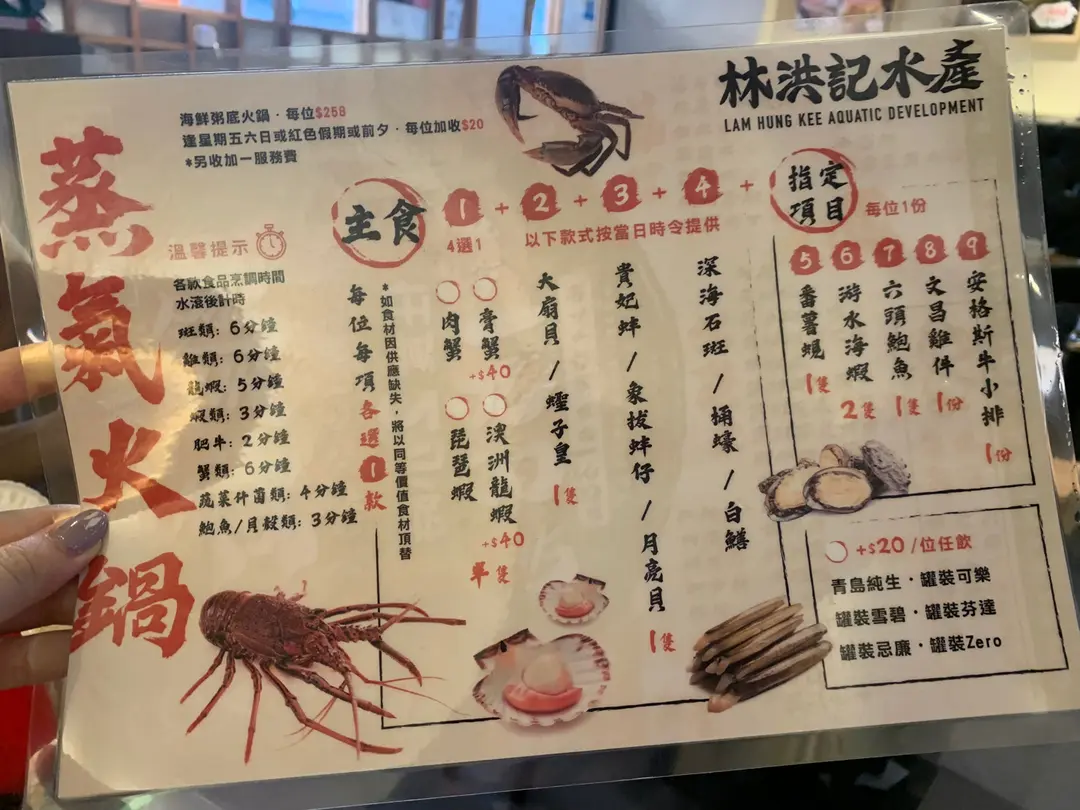 林洪記水產
LAM HUNG KEE AQUATIC DEVELOPMENT
蒸氣火鍋
海鮮粥底火鍋·每位$258
逢星期五六日或紅色假期或前夕·每位加收$20
*另收加一服務費
溫馨提示
各款食品烹調時間
水滾後計時
斑類：6分鐘
雞類：6分鐘
龍蝦：5分鐘
蝦類：3分鐘
肥牛：2分鐘
蟹類：6分鐘
蔬菜什菌類：4分鐘
鮑魚/貝殼類：3分鐘
主食
每位每項各選1款
*如食材因供應缺失，將以同等價值食材頂替
1 + 2 + 3 + 4 +
4選1
以下款式按當日時令提供
肉蟹
膏蟹
+$40
琵琶蝦
澳洲龍蝦
+$40
單隻
大扇貝/蟶子皇
1隻
貴妃蚌/象拔蚌仔/月亮貝
1隻
深海石斑/桶蠔/白鱔
指定項目
每位1份
5
番薯蜆
1隻
6
游水海蝦
2隻
7
六頭鮑魚
1隻
8
文昌雞件
1份
9
安格斯牛小排
1份
+$20/位任飲
青島純生·罐裝可樂
罐裝雪碧·罐裝芬達
罐裝忌廉·罐裝Zero